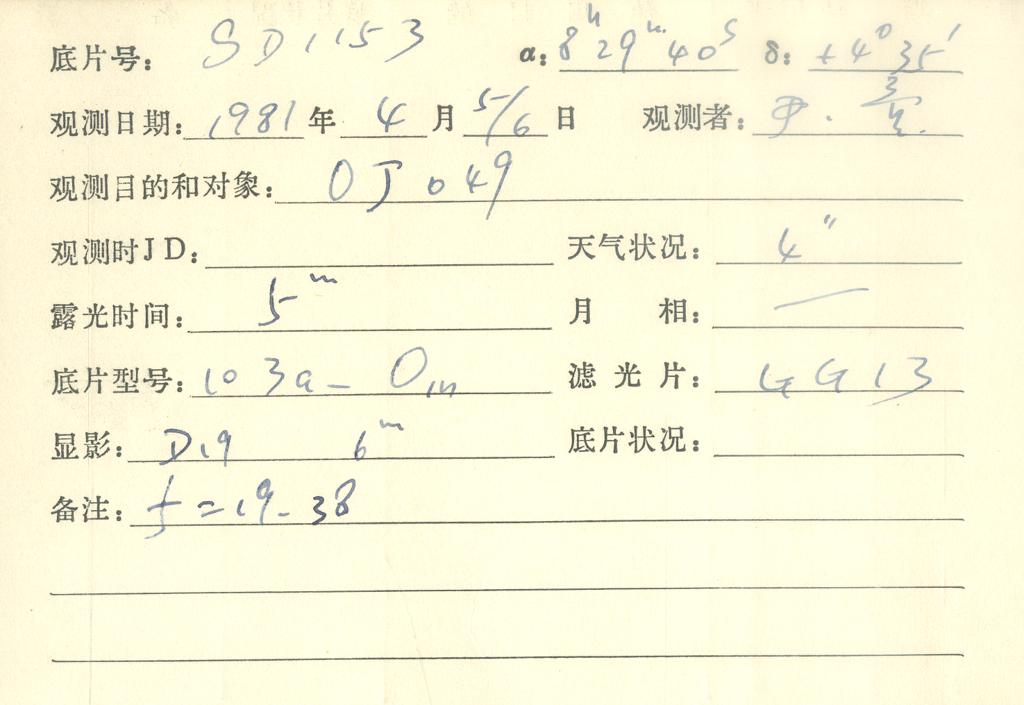 底片号: SD1153 α: 8h29m40s δ: +4°35′
观测日期: 1981年 4月 5/6日 观测者:
观测目的和对象: OJ 049
观测时JD: 天气状况: 4″
露光时间: 5m 月 相: —
底片型号: 103a-O 滤光片: GG13
显影: D19 6m 底片状况:
备注: f=19.38